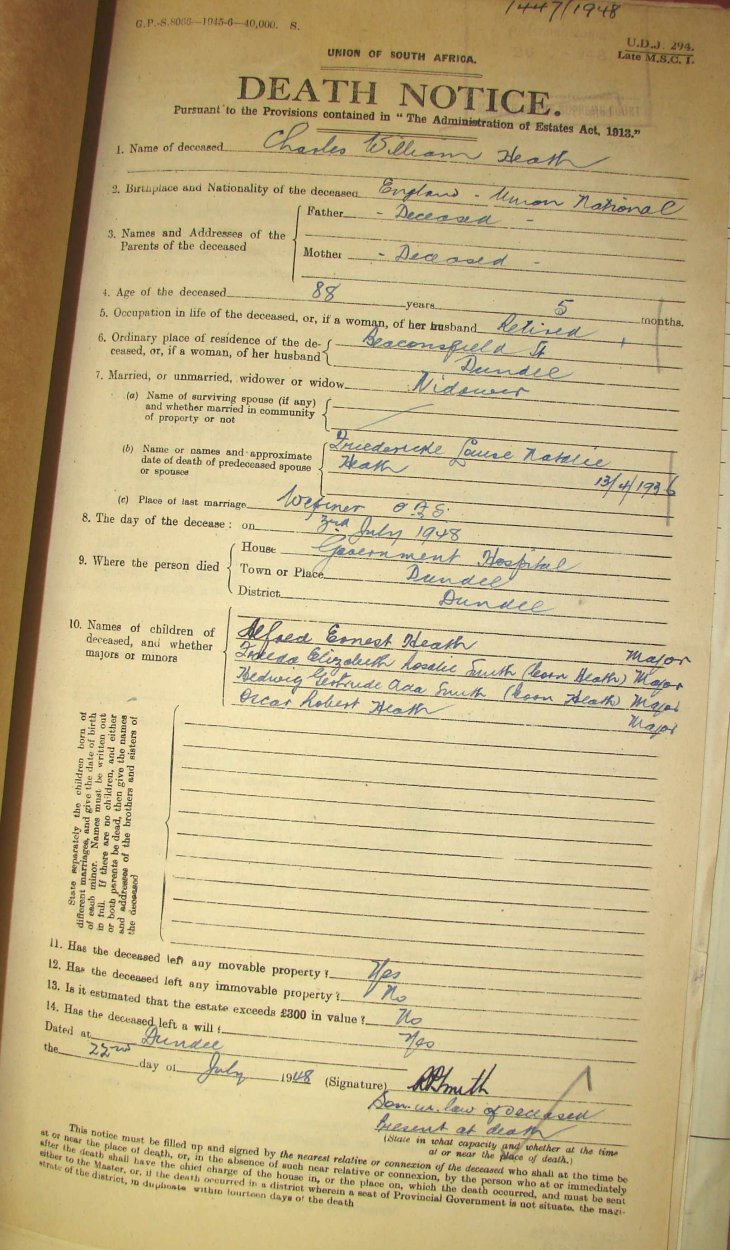 1447/1948
G.P.-S.8066—1945-6—40,000. S.
U.D.J. 294.
Late M.S.C. I.
UNION OF SOUTH AFRICA.
DEATH NOTICE.
Pursuant to the Provisions contained in "The Administration of Estates Act, 1913."
1. Name of deceased Charles William Heath
2. Birthplace and Nationality of the deceased England - Union National
3. Names and Addresses of the Parents of the deceased
Father - Deceased -
Mother - Deceased -
4. Age of the deceased 88 years 5 months.
5. Occupation in life of the deceased, or, if a woman, of her husband Retired
6. Ordinary place of residence of the de-
ceased, or, if a woman, of her husband
Beaconsfield St
Dundee
7. Married, or unmarried, widower or widow Widower
(a) Name of surviving spouse (if any)
and whether married in community
of property or not
(b) Name or names and approximate
date of death of predeceased spouse
or spouses
Friedericke Louise Natalie
Heath
13/4/1936
(c) Place of last marriage O.F.S.
8. The day of the decease : on 3rd July 1948
9. Where the person died
House Government Hospital
Town or Place Dundee
District Dundee
10. Names of children of
deceased, and whether
majors or minors
Alfred Ernest Heath Major
Frieda Elizabeth Rosalie Smith (born Heath) Major
Hedwig Gertrude Ada Smith (born Heath) Major
Oscar Robert Heath Major
State separately the children born of
different marriages, and give the date of birth
of each minor. Names must be written out
in full. If there are no children, and either
or both parents be dead, then give the names
and addresses of the brothers and sisters of
the deceased
11. Has the deceased left any movable property ? Yes
12. Has the deceased left any immovable property ? No
13. Is it estimated that the estate exceeds £300 in value ? No
14. Has the deceased left a will ? Yes
Dated at Dundee
the 22nd day of July 1948 (Signature) Smith
Son in law of deceased
Present at death
(State in what capacity and whether at the time
at or near the place of death.)
This notice must be filled up and signed by the nearest relative or connexion of the deceased who shall at the time be
at or near the place of death, or, in the absence of such near relative or connexion, by the person who at or immediately
after the death shall have the chief charge of the house in, or the place on, which the death occurred, and must be sent
either to the Master, or, if the death occurred in a district wherein a seat of Provincial Government is not situate, the magi-
strate of the district, in duplicate within fourteen days of the death